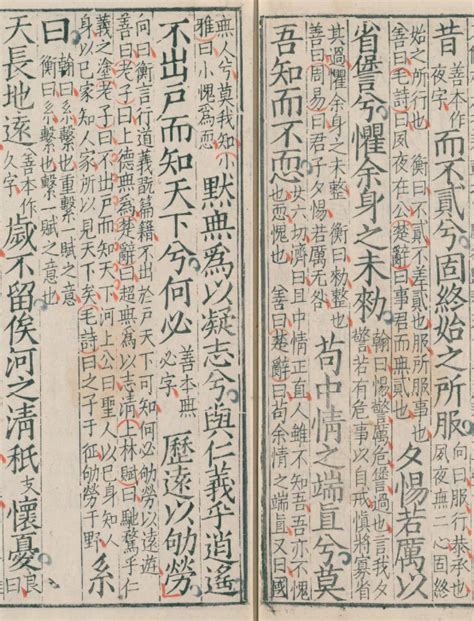 昔善本作夜字而不貳兮固終始之所服曰服行恭承也夙夜無二心固終
始之所行也 衡曰不貳不差貳也服所服事也善曰毛詩曰夙夜在公楚辭曰事君而無貳也夕惕若厲以
省諐兮懼余身之未勑翰曰惕驚厲危諐過也言我夕驚若有危事以自戒慎將寡省
其過懼余身之未整 衡曰勑整也善曰周易曰君子夕惕若厲无咎苟中情之端直兮莫
吾知而不恧女六切濟曰且中情正直人雖不知吾吾亦不慙也恧愧也 善曰楚辭曰苟余情之端直又曰國
無人兮莫我知小雅曰小愧為恧默無為以凝志兮與仁義乎逍遙
不出戶而知天下兮何必善本無必字歷遠以劬勞
向曰衡言行道義說篇籍不出於戶天下可知何必劬勞以遠遊善曰老子曰上德無為楚辭曰超無為以志清上林賦曰馳騖乎仁
義之塗老子曰不出戶而知天下河上公曰聖人以己身知人身以己家知人家所以見天下矣毛詩曰之子于征劬勞于野系
曰翰曰系繫也重繫一賦之意也衡曰系繫也繫一賦之意也
天長地遠善本作久字歲不留俟河之清秖支懷憂良曰